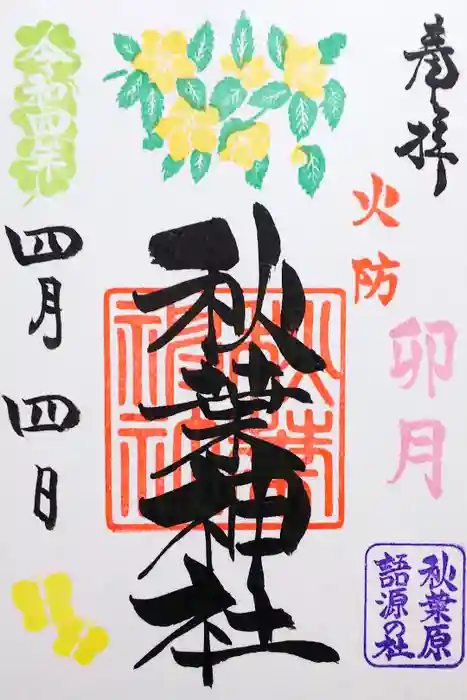 奉拝
火防
卯月
秋葉原
語源の社
秋葉神社
秋葉神社
令和四年
四月四日